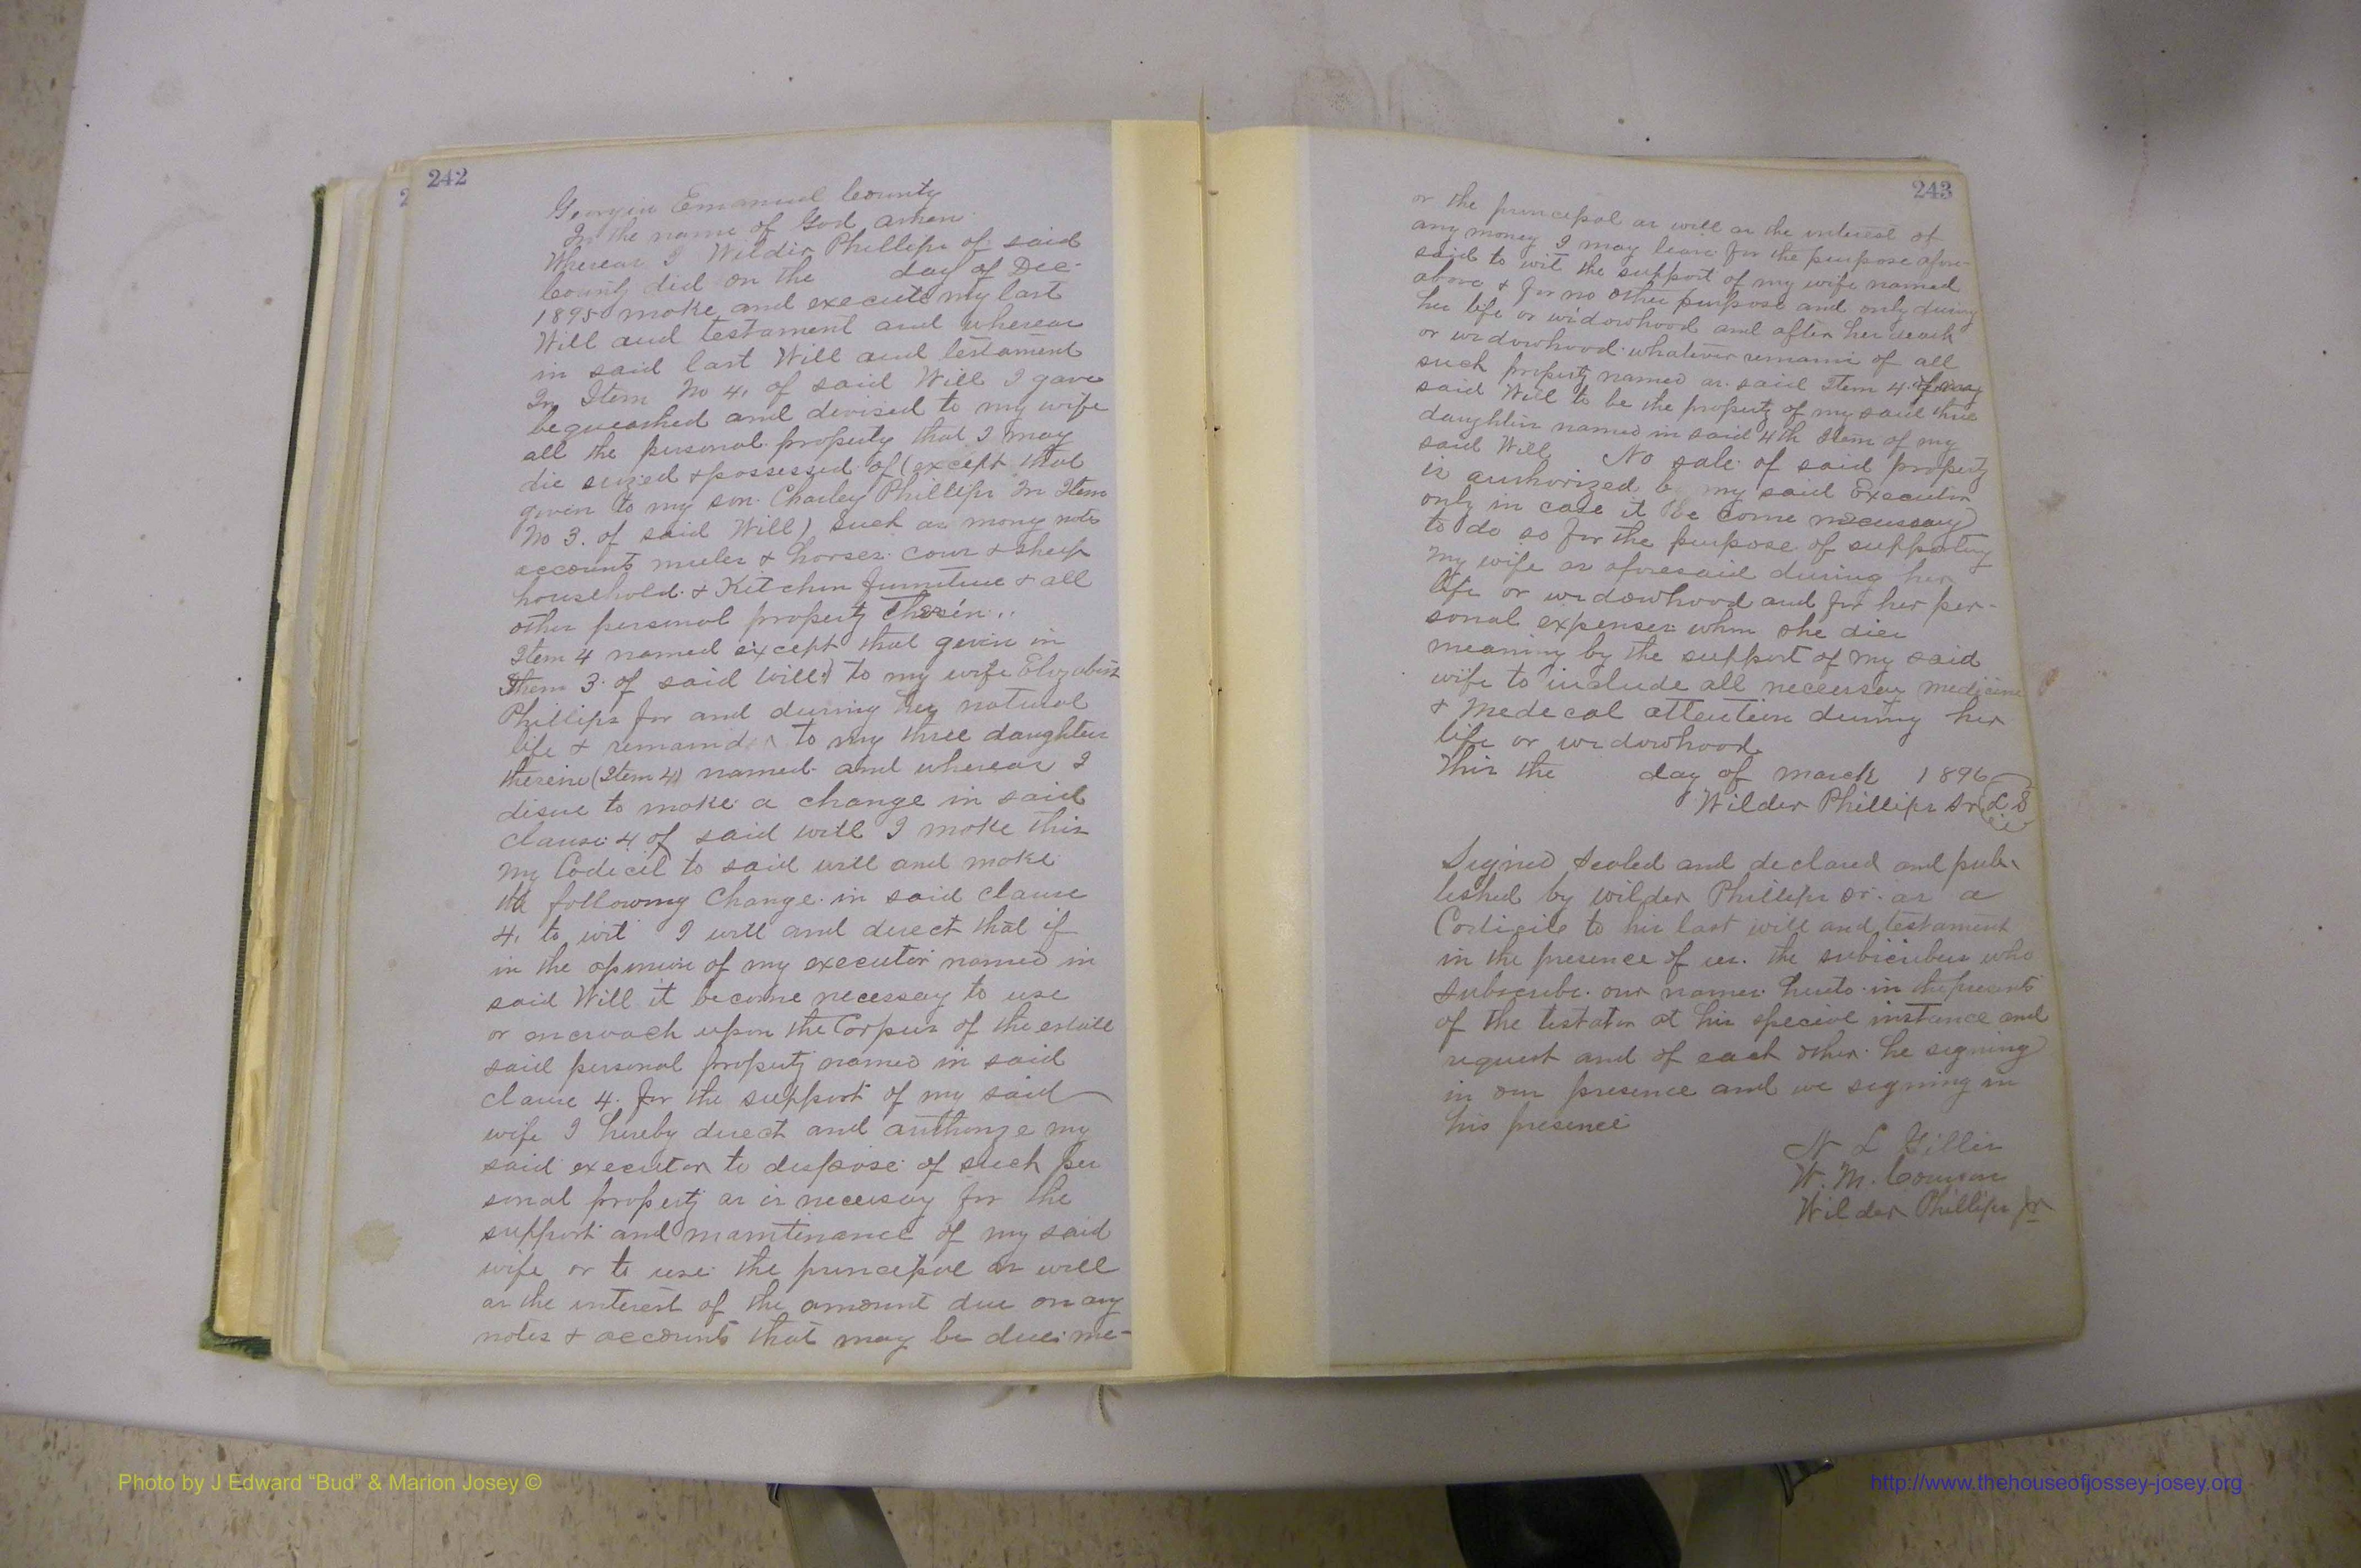 242
Georgia Emanuel County
In the name of God amen
Whereas I Wilder Phillips of said
County did on the day of Dec-
1895 make and execute my last
Will and testament and whereas
in said last Will and testament
In Item No 4, of said Will I gave
bequeathed and devised to my wife
all the personal property that I may
die seized & possessed of (except that
given to my son Charley Phillips In Item
No 3. of said Will) Such as mony notes
accounts mules & horses cows & sheep
household & Kitchen furniture & all
other personal property therein
Item 4 named except that given in
Item 3 of said will) to my wife Elizabeth
Phillips for and during her natural
life & remainder to my three daughters
therein (Item 4) named and whereas I
desire to make a change in said
Clause 4 of said will I make this
my Codicil to said will and make
the following Change in said Clause
4, to wit I will and direct that if
in the opinion of my executor named in
said Will it become necessary to use
or encroach upon the Corpus of the estate
said personal property named in said
clause 4. for the support of my said
wife I hereby direct and authorize my
said executor to dispose of such per
sonal property as is necessary for the
support and maintinance of my said
wife or to use the principal as well
as the interest of the amount due on any
notes & accounts that may be due me-
243
or the principal as well as the interest of
any money I may leave for the purpose afore-
said to wit the support of my wife named
above & for no other purpose and only during
her life or widowhood and after her death
or widowhood whatever remains of all
such property named as said Item 4 of my
said Will to be the property of my said three
daughters named in said 4th Item of my
said Will No sale of said property
is authorized by my said Executor
only in case it be come necessary
to do so for the purpose of supporting
my wife as aforesaid during her
life or widowhood and for her per-
sonal expenses when she dies
meaning by the support of my said
wife to include all necessary medicine
& medecal attention during her
life or widowhood
This the day of march 1896
Wilder Phillips Sr L S
Signed Sealed and declared and pub-
lished by wilder Phillips Sr. as a
Codicile to his last will and testament
in the presence of us. the subscribers who
subscribe our names hereto in the presents
of the testator at his special instance and
request and of each other he signing
in our presence and we signing in
his presence
N L Gillis
W. M.
Wilder Phillips Jr
Photo by J Edward “Bud” & Marion Josey ©
http://www.thehouseofjossey-josey.org